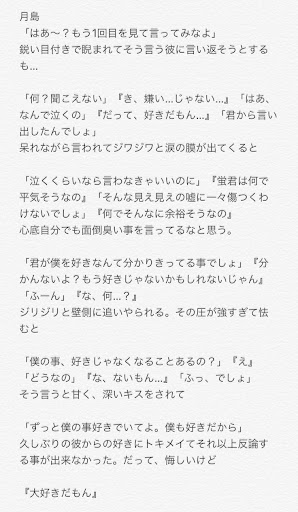 月島
「はあ〜？もう1回目を見て言ってみなよ」
鋭い目付きで睨まれてそう言う彼に言い返そうとする
も…
「何？聞こえない」『き、嫌い…じゃない…』「はあ、
なんで泣くの」『だって、好きだもん…』「君から言い
出したんでしょ」
呆れながら言われてジワジワと涙の膜が出てくると
「泣くくらいなら言わなきゃいいのに」『蛍君は何で
平気そうなの』「そんな見え見えの嘘に一々傷つくわ
けないでしょ」『何でそんなに余裕そうなの』
心底自分でも面倒臭い事を言ってるなと思う。
「君が僕を好きなんて分かりきってる事でしょ」『分
かんないよ？もう好きじゃないかもしれないじゃん』
「ふーん」『な、何…？』
ジリジリと壁側に追いやられる。その圧が強すぎて怯
むと
「僕の事、好きじゃなくなることあるの？」『え』
「どうなの」『な、ないもん…』「ふっ、でしょ」
そう言うと甘く、深いキスをされて
「ずっと僕の事好きでいてよ。僕も好きだから」
久しぶりの彼からの好きにトキメイてそれ以上反論す
る事が出来なかった。だって、悔しいけど
『大好きだもん』